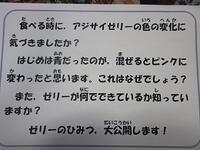 食べる時に、アジサイゼリーの色の変化に
気づきましたか?
はじめは青だったのが、混ぜるとピンクに
変わったと思います。これはなぜでしょう?
また、ゼリーが何でできているか知ってい
ますか?
ゼリーのひみつ、大公開します!